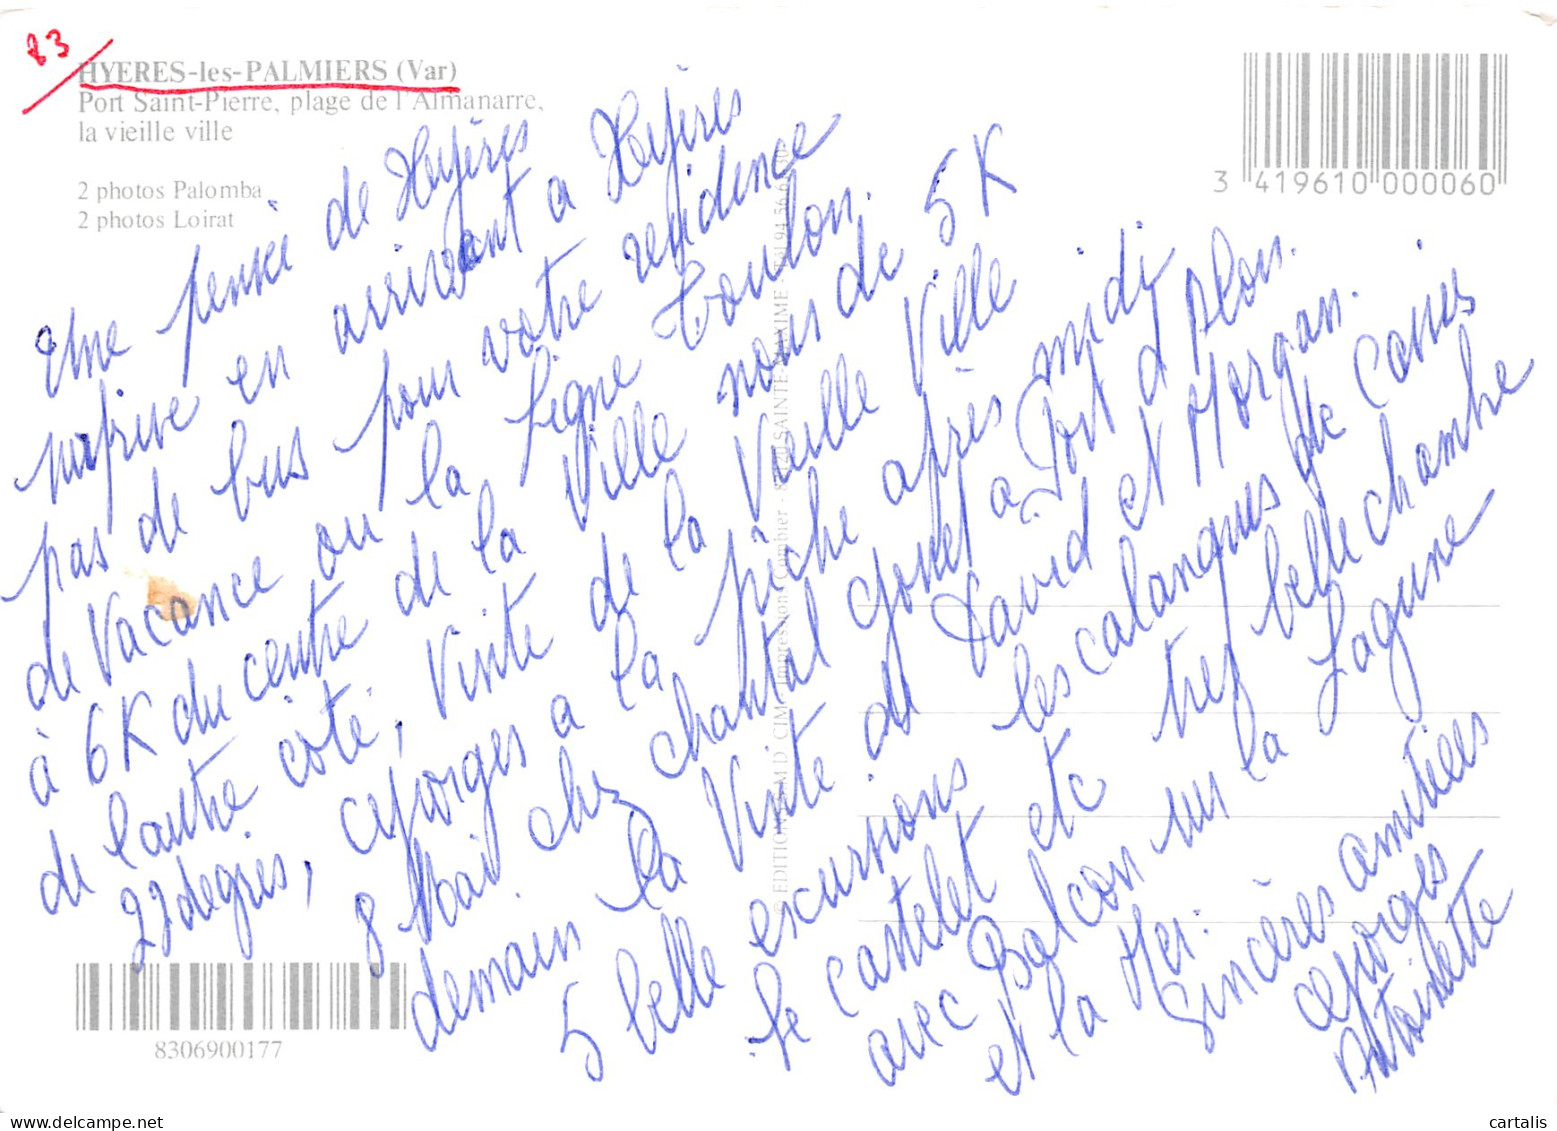 83
HYERES-les-PALMIERS (Var)
Port Saint-Pierre, plage de l'Almanarre,
la vieille ville
2 photos Palomba
2 photos Loirat
3 419610 000060
Une pensée de Hyères
surprise en arrivant a Hyères
pas de bus pour votre residence
de Vacance ou la ligne Toulon.
à 6K du centre de la Ville nous de 5K
de l'autre coté, Visite de la Vieille Ville
22 degrés, Georges a la pêche après midi
8 Mai chez Chantal Gonet a Port d
demain la Visite de David et Morgan.
5 belle excursions les calanques de Cassis
le castelet etc tres belle chambre
avec Balcon sur la Lagune
et la Mer.
Sincères amitiées
Georges
Antoinette
© EDITIONS M.D CIM Impression Combier SAINTE MAXIME Tél 94 56
8306900177
cartalis